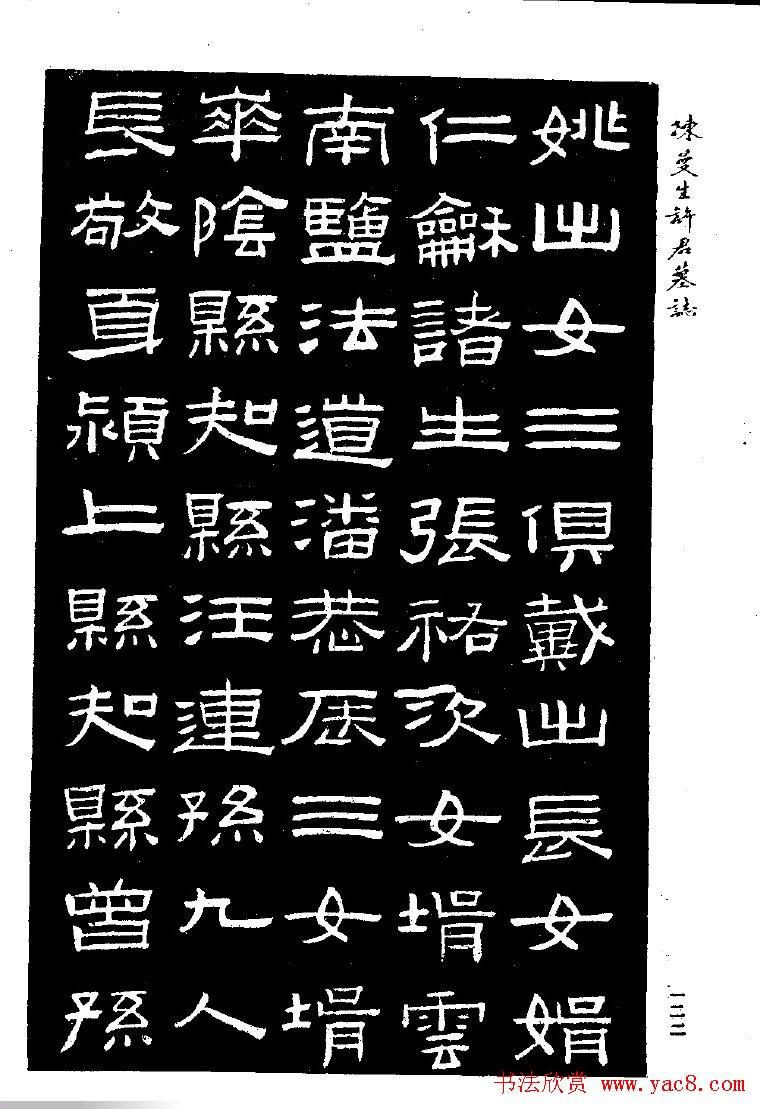 陳曼生許君墓誌
姚出女三俱戴出長女婿
仁龢諸生張次女壻雲
南鹽法道潘恭辰三女壻
華陰縣知縣汪連孫九人
長敬直潁上縣知縣曾孫
一二二
书法欣赏 www.yac8.com